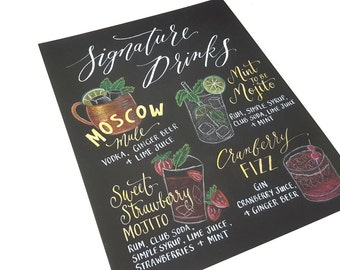 Signature
Drinks
MOSCOW
mule
VODKA, GINGER BEER
+ LIME JUICE
Mint
TO BE
Mojito
RUM, SIMPLE SYRUP
CLUB SODA, LIME JUICE
+ MINT
Sweet
Strawberry
MOJITO
RUM, CLUB SODA,
SIMPLE SYRUP, LIME JUICE,
STRAWBERRIES + MINT
Cranberry
FIZZ
GIN
CRANBERRY JUICE,
+ GINGER BEER